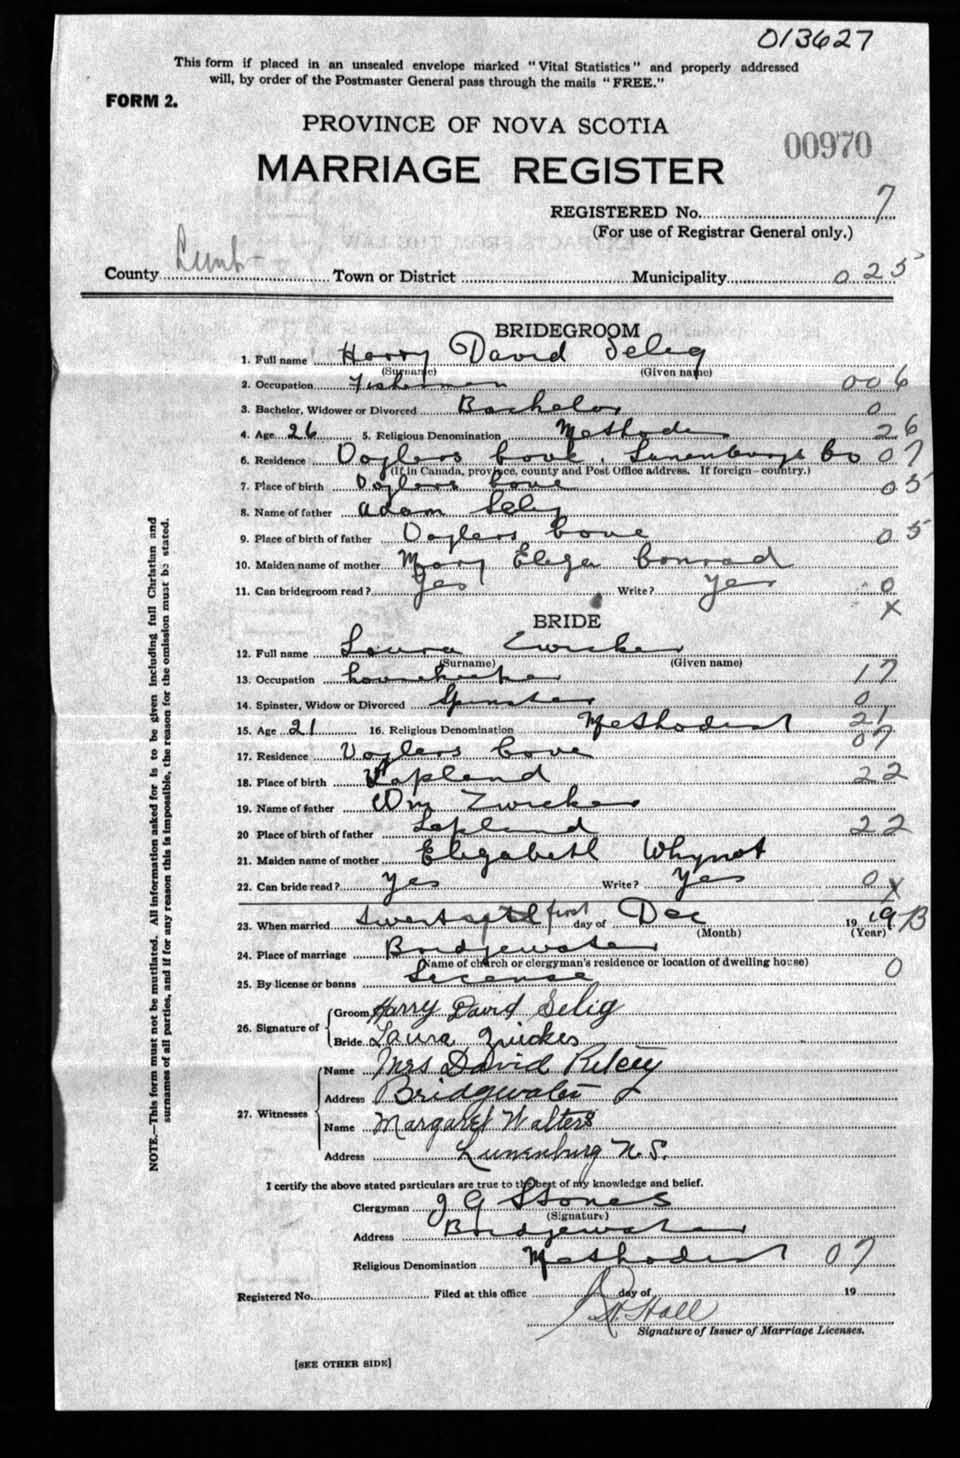 013627
This form if placed in an unsealed envelope marked "Vital Statistics" and properly addressed
will, by order of the Postmaster General pass through the mails "FREE."
FORM 2.
PROVINCE OF NOVA SCOTIA
00970
MARRIAGE REGISTER
REGISTERED No. 7
(For use of Registrar General only.)
County Lunb Town or District Municipality 025
BRIDEGROOM
1. Full name Harry David Selig
(Surname) (Given name)
2. Occupation Fisherman 006
3. Bachelor, Widower or Divorced Bachelor 0
4. Age 26 5. Religious Denomination Methodis 26
6. Residence Voglers Cove, Lunenburg Co 07
(If in Canada, province, county and Post Office address. If foreign—country.)
7. Place of birth Voglers Cove 05
8. Name of father Adam Selig
9. Place of birth of father Voglers Cove 05
10. Maiden name of mother Mary Eliza Conrad
11. Can bridegroom read? Yes Write? Yes 0
X
BRIDE
12. Full name Laura Zwicker
(Surname) (Given name)
13. Occupation housekeeper 17
14. Spinster, Widow or Divorced Spinster 0
15. Age 21 16. Religious Denomination Methodist 21
17. Residence Voglers Cove 07
18. Place of birth Lapland 22
19. Name of father Wm Zwicker
20 Place of birth of father Lapland 22
21. Maiden name of mother Elizabeth Whynot
22. Can bride read? Yes Write? Yes 0 X
23. When married first day of Dec 19 19 B
(Month) (Year)
24. Place of marriage Bridgewater
(Name of church or clergyman's residence or location of dwelling house)
25. By license or banns License 0
26. Signature of Groom Harry David Selig
Bride Laura Zwicker
27. Witnesses Name Mrs David
Address Bridgwater
Name Margaret Walters
Address Lunenburg N.S.
I certify the above stated particulars are true to the best of my knowledge and belief.
Clergyman J G Stones
(Signature)
Address Bridgewater
Religious Denomination Methodist 07
Registered No. Filed at this office day of 19
Hall
Signature of Issuer of Marriage Licenses.
[SEE OTHER SIDE]
NOTE.—This form must not be mutilated. All information asked for is to be given including full Christian and
surnames of all parties, and if for any reason this is impossible, the reason for the omission must be stated.